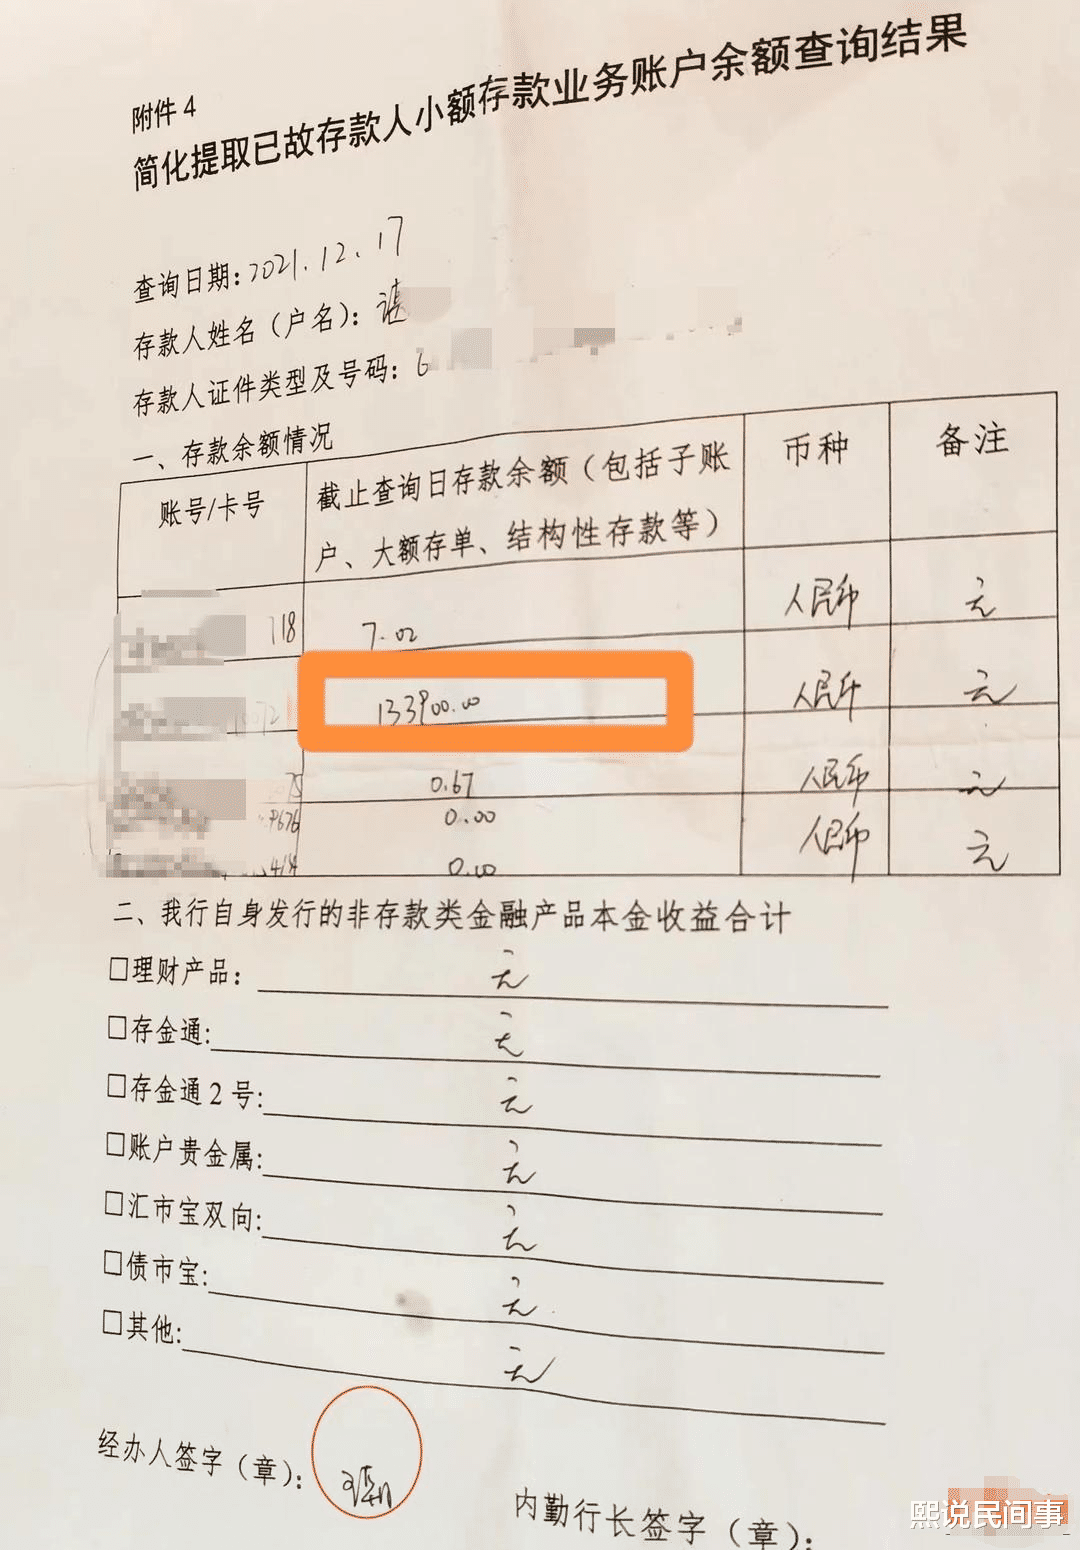 附件4
简化提取已故存款人小额存款业务账户余额查询结果
查询日期:2021.12.17
存款人姓名（户名）：谌
存款人证件类型及号码：6
一、存款余额情况
账号/卡号 截止查询日存款余额（包括子账户、大额存单、结构性存款等） 币种 备注
118 7.02 人民币 元
133900.00 人民币 元
75 0.67 人民币 元
9676 0.00 人民币 元
414 0.00
二、我行自身发行的非存款类金融产品本金收益合计
□理财产品： 元
□存金通: 元
□存金通2号: 元
□账户贵金属: 元
□汇市宝双向: 元
□债市宝: 元
□其他: 元
经办人签字（章）：
内勤行长签字（章）：
熙说民间事